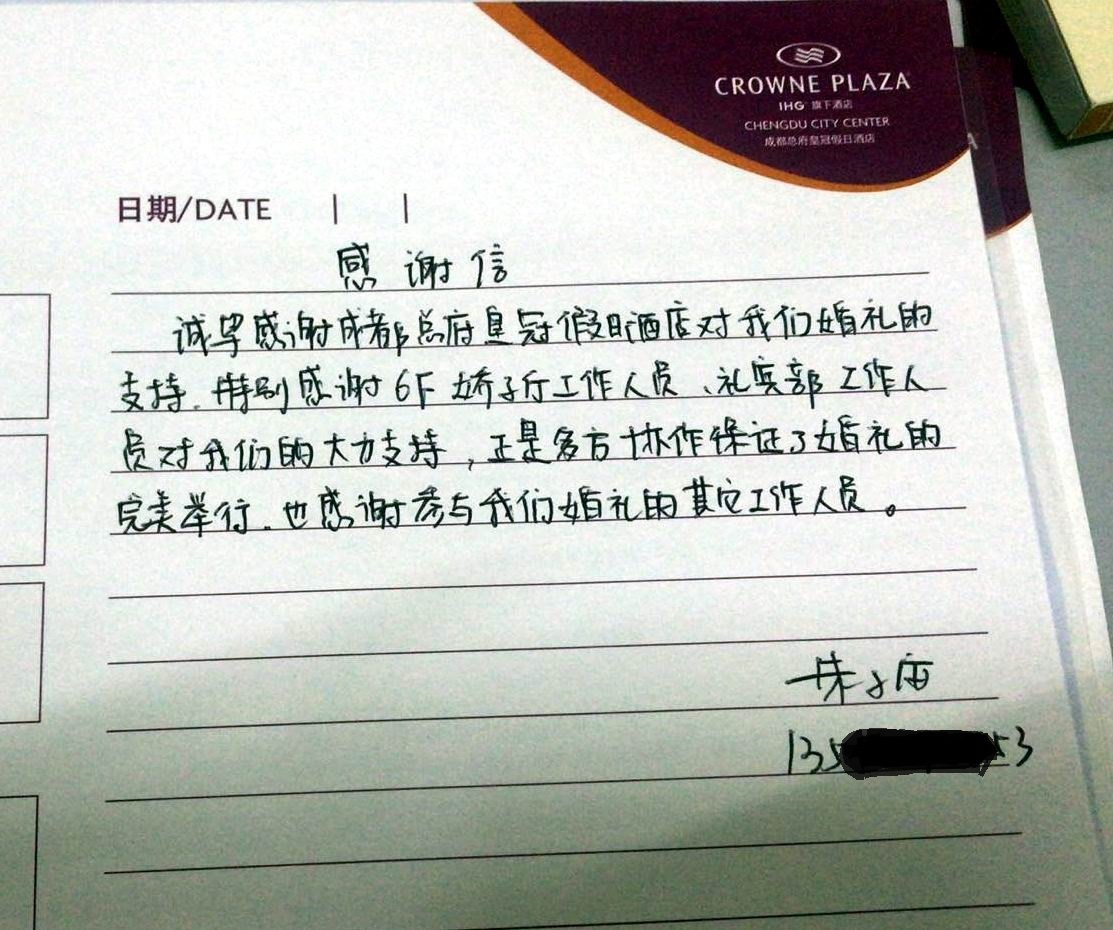 CROWNE PLAZA
IHG 旗下酒店
CHENGDU CITY CENTER
成都总府皇冠假日酒店
日期/DATE | |
感谢信
诚挚感谢成都总府皇冠假日酒店对我们婚礼的
支持.特别感谢6F娇子厅工作人员、礼宾部工作人
员对我们的大力支持，正是多方协作保证了婚礼的
完美举行.也感谢参与我们婚礼的其它工作人员。
朱
135 53